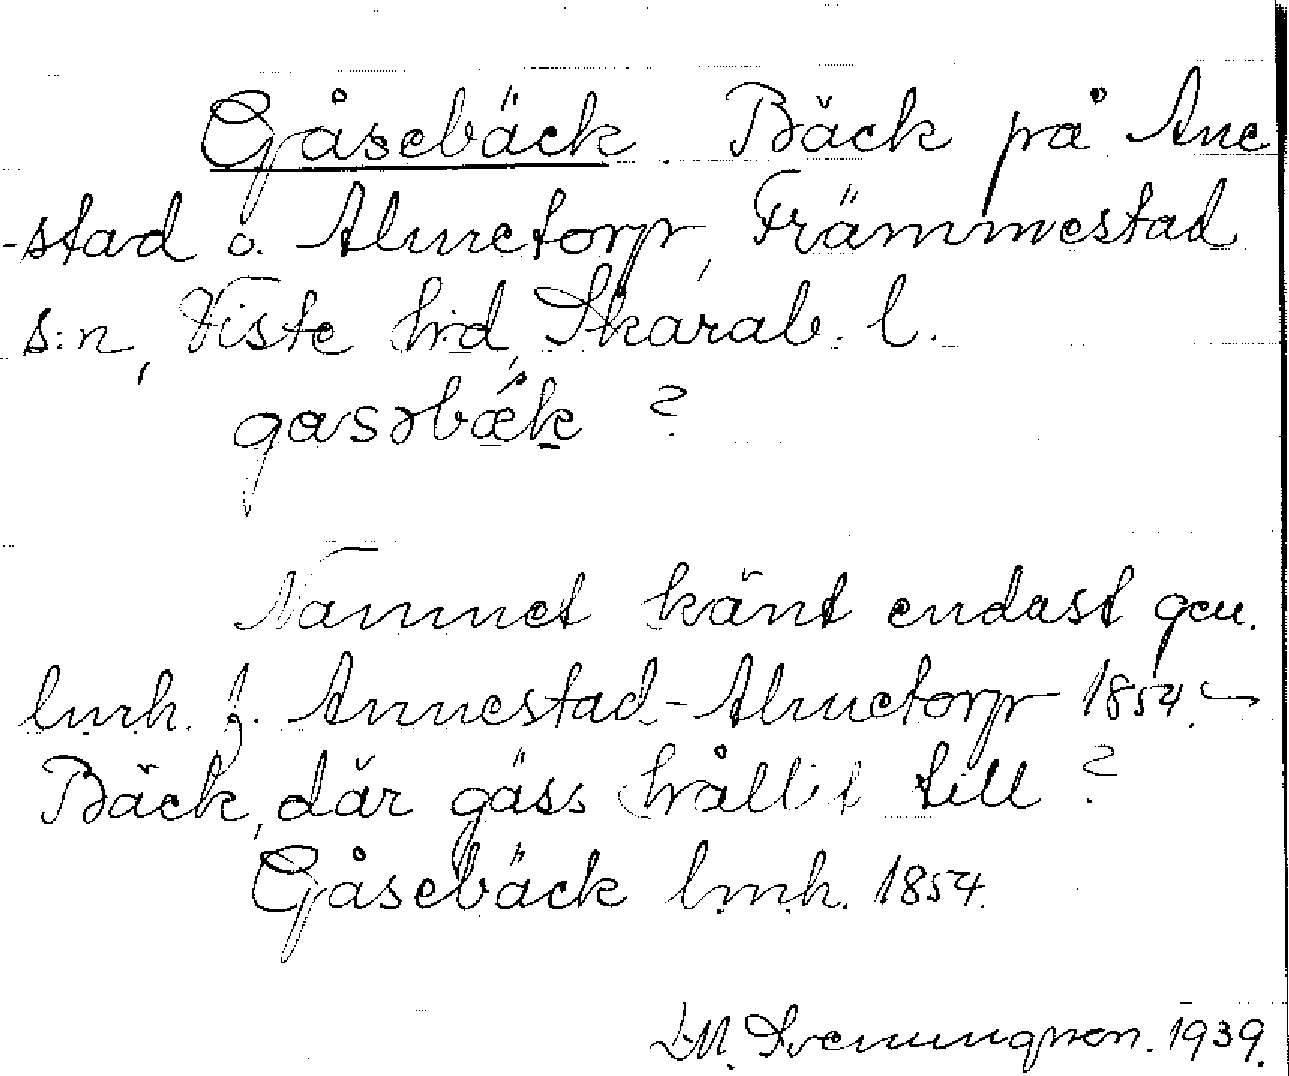 Gåsebäck. Bäck på Ane
-stad o. Almetorp, Främmestad
s:n, Viste h:d, Skarab. l.
gasəbǽk ?
Namnet känt endast gen.
lmh. f. Annestad-Almetorp 1854.
Bäck, där gäss hållit till ?
Gåsebäck lmh. 1854.
Svenungson. 1939.